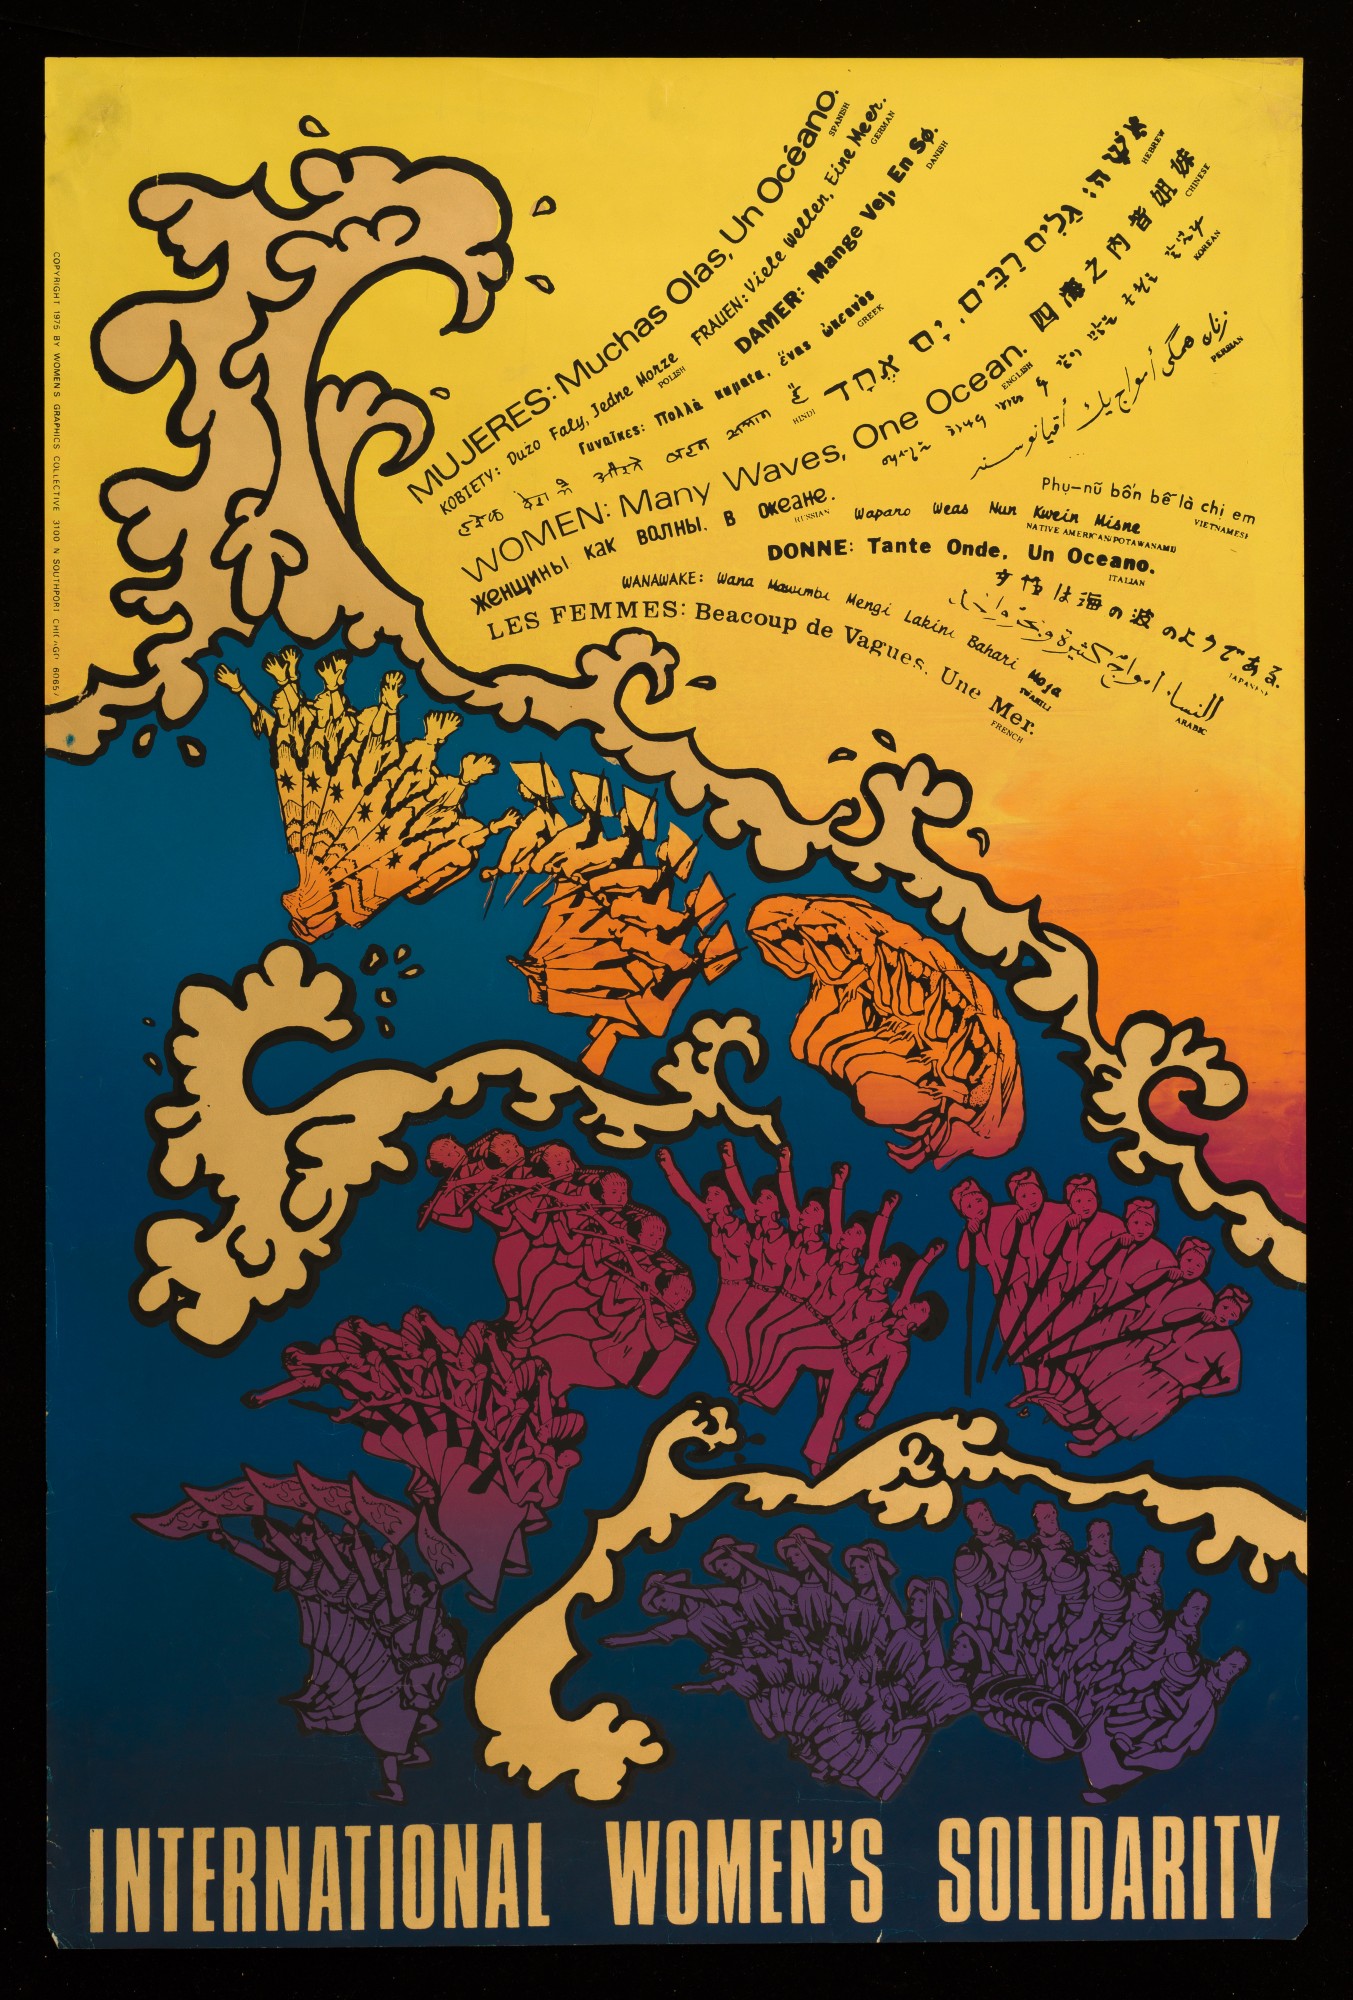 MUJERES: Muchas Olas, Un Océano.
SPANISH
KOBIETY: Dużo Faly, Jedne Morze
POLISH
FRAUEN: Viele Wellen, Eine Meer.
GERMAN
DAMER: Mange Vej, En Sø.
DANISH
Γυναῖκες: Πολλὰ κυματα, ἕνας ὠκεανὸς
GREEK
HINDI
אִשָּׁה: גַלִים רַבִּים, יָם אֶחָד
HEBREW
四海之內皆姐妹
CHINESE
KOREAN
WOMEN: Many Waves, One Ocean.
ENGLISH
زنان همگی امواج یك أقیانوسند
PERSIAN
женщины как волны. В Океане.
RUSSIAN
Phụ-nữ bốn bể là chị em
VIETNAMESE
Waparo Weas Nun Kwein Misne
NATIVE AMERICAN/POTAWANAMI
DONNE: Tante Onde, Un Oceano.
ITALIAN
女性は海の波のようである.
JAPANESE
WANAWAKE: Wana Mawimbi Mengi Lakini Bahari Moja
SWAHILI
النساء، امواج كثيرة وبحر واحد
ARABIC
LES FEMMES: Beacoup de Vagues, Une Mer.
FRENCH
COPYRIGHT 1975 BY WOMEN'S GRAPHICS COLLECTIVE 3100 N SOUTHPORT CHICAGO 60657
INTERNATIONAL WOMEN'S SOLIDARITY